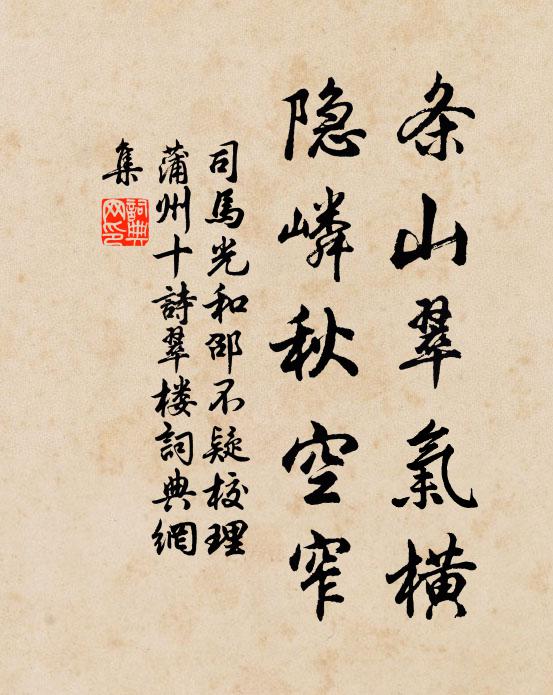 条山翠氣橫
隐嶙秋空窄
司馬光和邵不疑校理
蒲州十詩翠楼詞典網
集
詞典网印